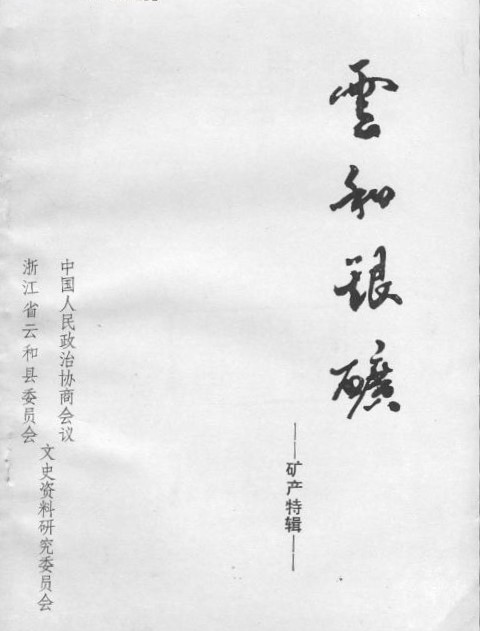 雲和銀礦
——矿产特辑——
中国人民政治协商会议
浙江省云和县委员会
文史资料研究委员会